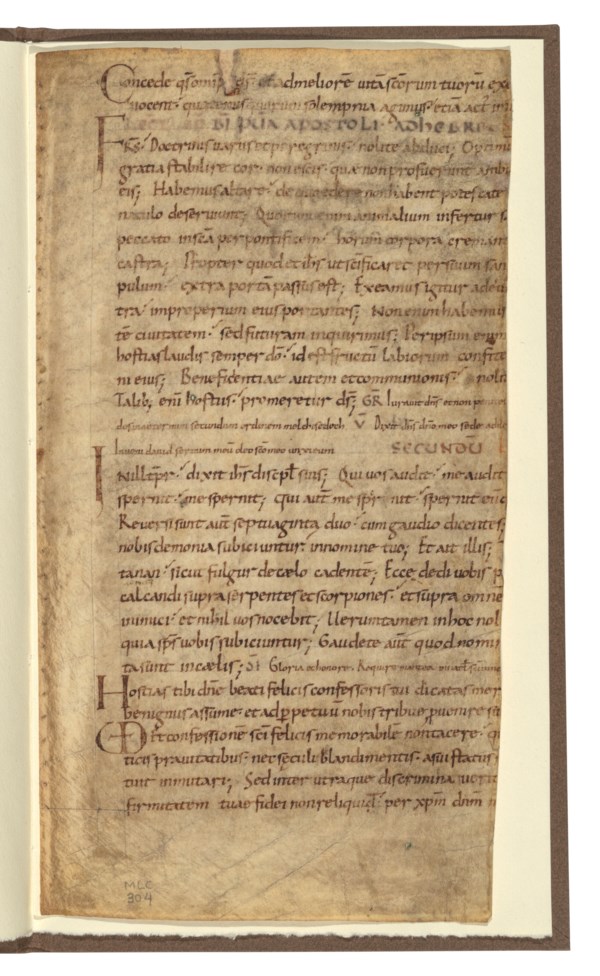 Concede qs omps ds ut ad meliorē uitā scorum tuorū exe
uocent quatenus quorum solemnia agimus etiā act imi
LECTIO BI PAULI APOSTOLI AD HEBRE
FRS Doctrinis uariis et peregrinis nolite abduci; Optimū
gratia stabilire cor non escis quae non profuerunt ambu
eis; Habemus altare de quo edere non habent potestate
naculo deseruiunt; Quorum enim animalium infertur s
peccato in sca per pontificem horum corpora creman
castra; Propter quod et ihs ut scificaret per suum san
pulum extra portā passus est; Exeamus igitur ad eu
tra improperium eius portantes; Non enim habemus
tē ciuitatem sed futuram inquirimus; Per ipsum erg
hostias laudis semper dō id est fructū labiorum confite
ni eius; Beneficentiae autem et communionis nolit
Talib; enī hostiis promeretur ds; GR Iurauit dns et non
dos in aeternum secundum ordinem melchisedech V Dixit dns dno meo sede
Inueni dauid seruum meū oleo sco meo unxi eum SECUNDŪ
IN ILL tpr dixit ihs discipl suis; Qui uos audit me audit
spernit me spernit; qui aut me spernit spernit eum
Reuersi sunt aut septuaginta duo cum gaudio dicentes;
nobis demonia subiciuntur in nomine tuo; Et ait illis;
tanan sicut fulgur de caelo cadentē; Ecce dedi uobis p
calcandi supra serpentes et scorpiones et supra omnē
inimici et nihil uos nocebit; Ueruntamen in hoc nol
quia sps uobis subiciuntur; Gaudete aut quod nomi
ta sunt in caelis; Of Gloria et honore. Require
Hostias tibi dne beati felicis confessoris tui dicatas mer
benignus assume et ad perpetuū nobis tribue puenire s
UD Et confessione sci felicis memorabilē non tacere q
ticis prauitatibus nec seculi blandimentis a sui status
tuit inmutari; Sed inter utraque discrimina uerit
firmitatem tuae fidei non reliquid per xpm dnm n
MLC
304